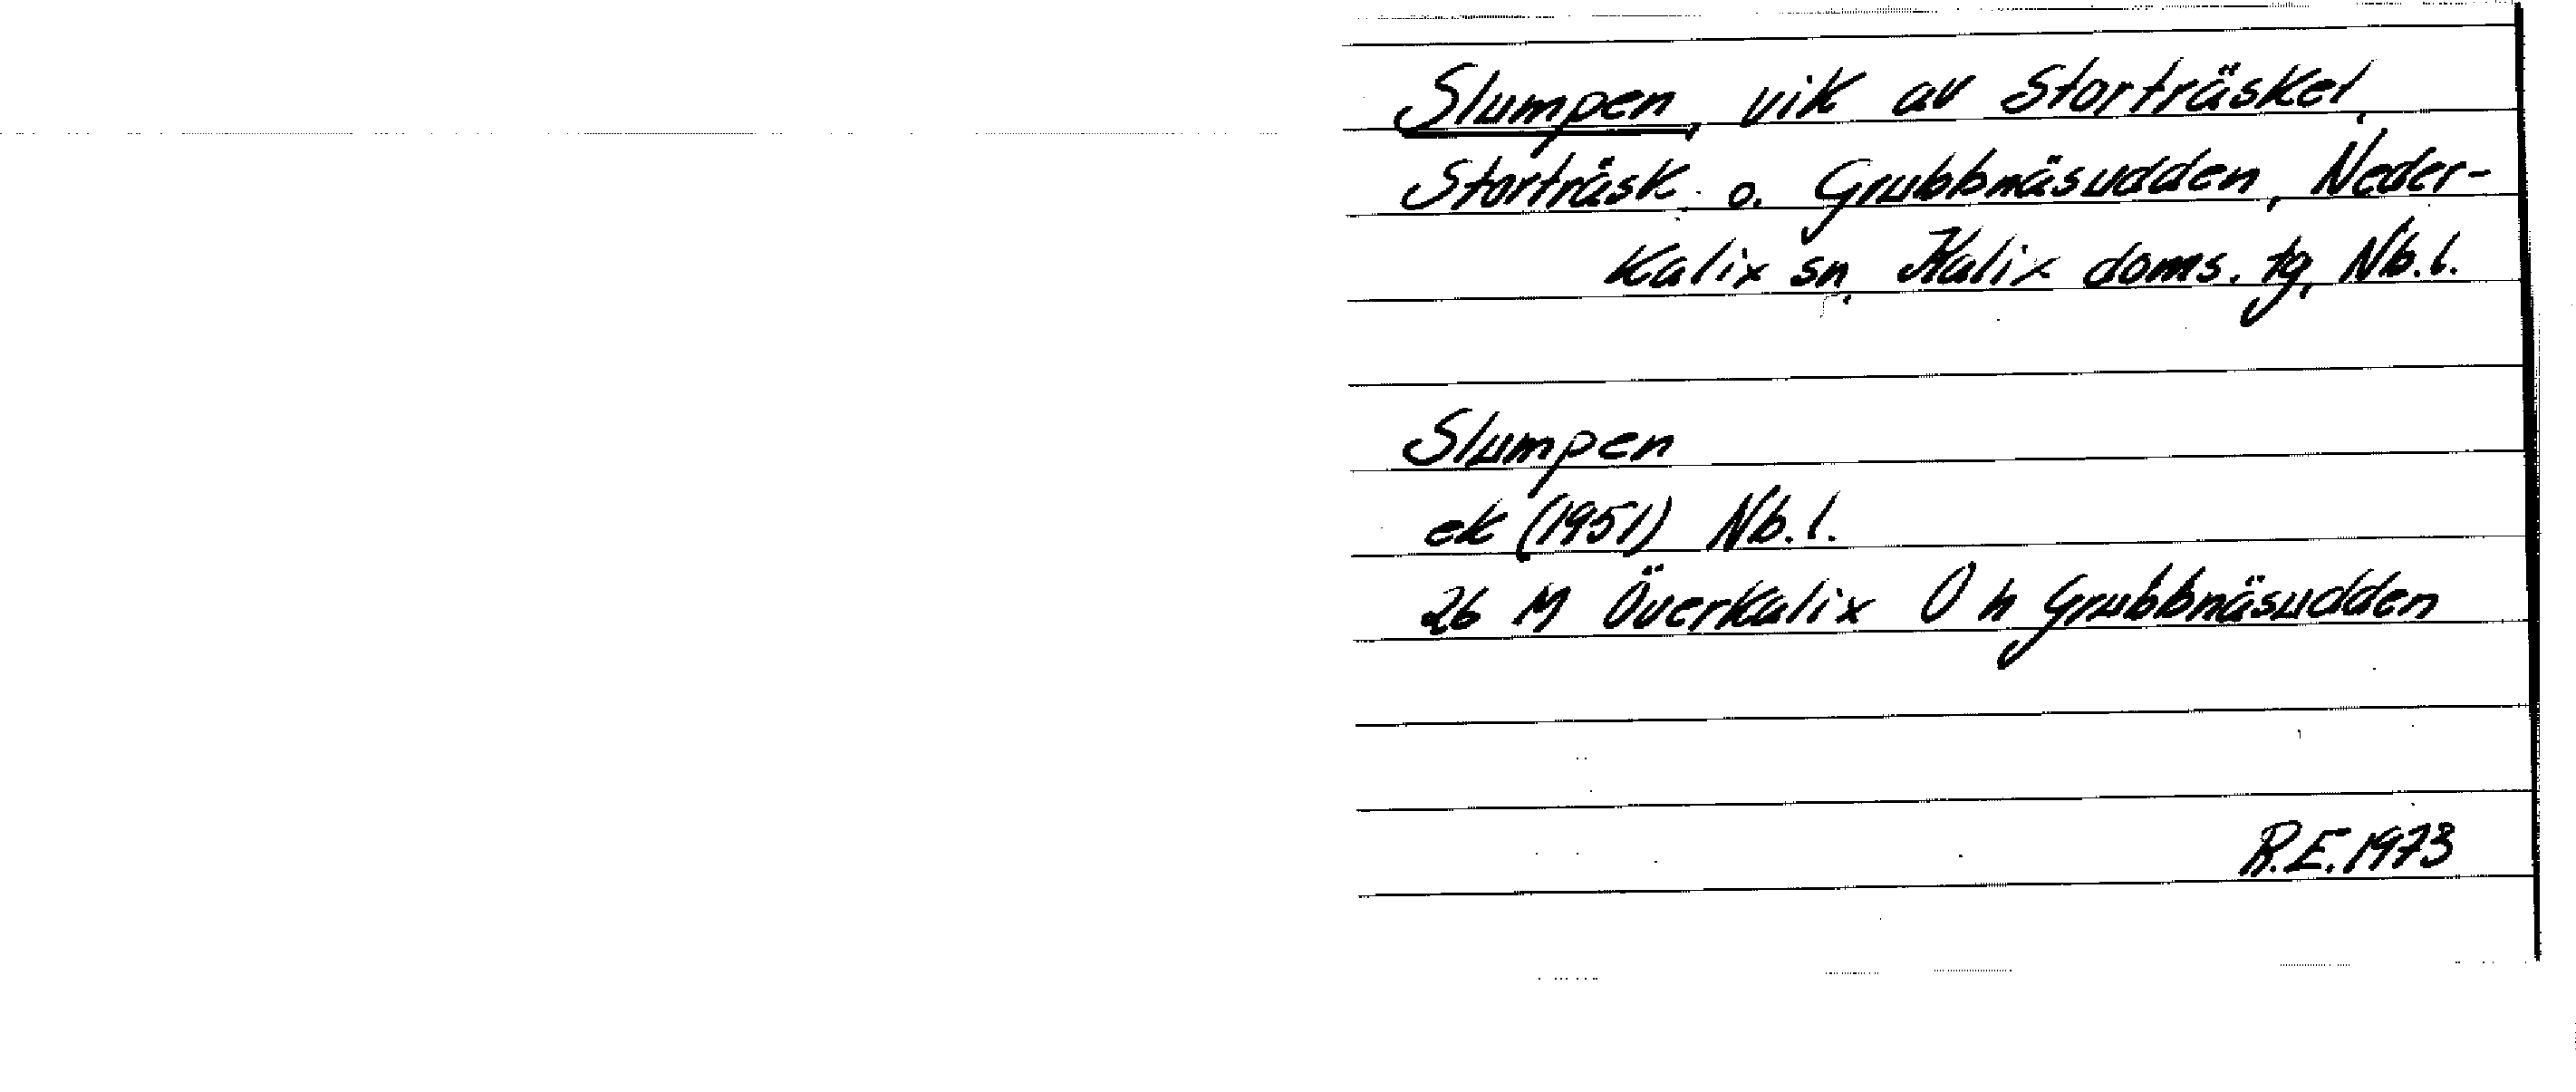 Slumpen, vik av Storträsket,
Storträsk o. Grubbnäsudden, Neder-
Kalix sn, Kalix doms. tg, Nb.l.
Slumpen
ek (1951) Nb.l.
26 M Överkalix O h Grubbnäsudden
R.E. 1973